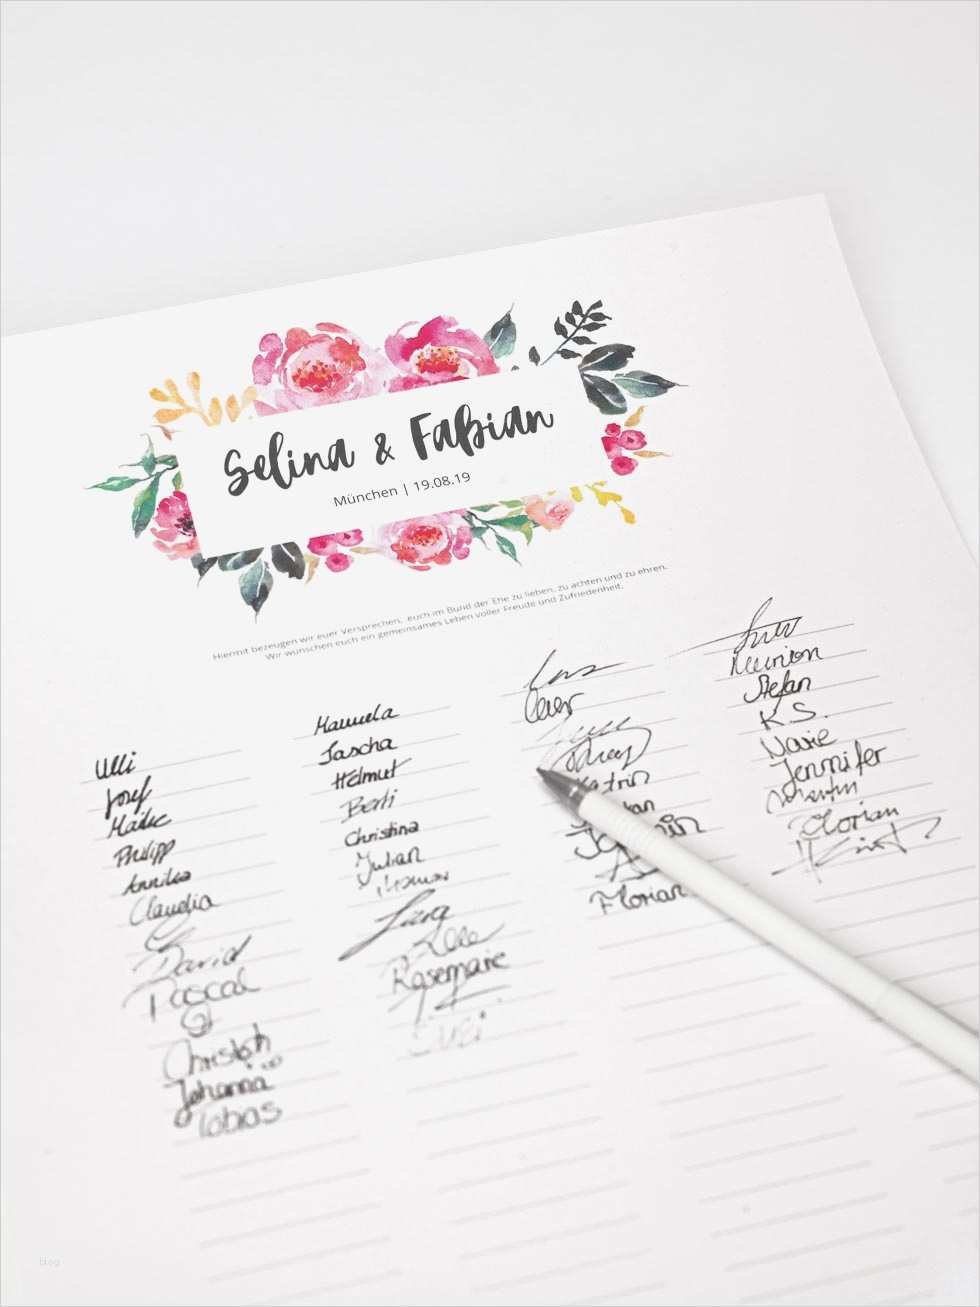 Selina & Fabian
München | 19.08.19
Hiermit bezeugen wir euer Versprechen, euch im Bund der Ehe zu lieben, zu achten und zu ehren.
Wir wünschen euch ein gemeinsames Leben voller Freude und Zufriedenheit.
Ulli
Josef
Maike
Philipp
Annika
Claudia
David
Pascal
Christoph
Johanna
Tobias
Manuela
Sascha
Helmut
Berti
Christina
Julian
Thomas
Rosemarie
Susi
Katrin
Jasmin
Florian
Stefan
K.S.
Marie
Jennifer
Martin
Florian
blog